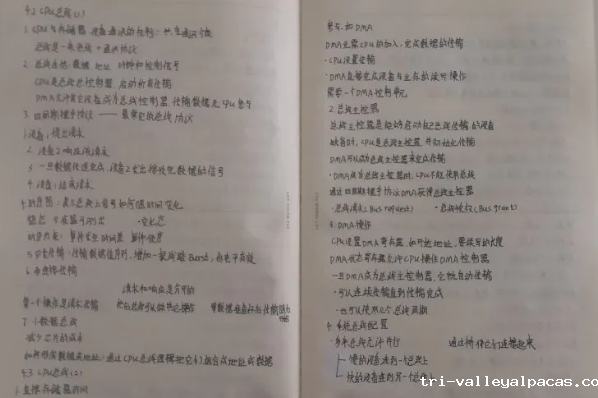 4.2 CPU总线(1)
1. CPU与存储器、设备通讯的机制:
总线是一束线 + 通讯协议
2. 总线由地址、数据、时钟和控制信号
CPU是总线主控制器,启动所有传输
DMA允许其它设备成为总线控制器,传输数据无CPU参与
3. 四周期握手协议 —— 最常见的总线协议
1. 设备1提出请求
2. 设备2响应该请求
3. 一旦数据传送完成,设备2发出接收完数据的信号
4. 设备1结束请求
4. 时序图:表示总线上信号如何随时间变化
变化态
5. 突发传输:传输数据值序列,增加一根线路Burst,低电平有效
请求和响应是分开的
第一个操作是请求传输
7. 小数据总线
减少芯片的成本
4.3 CPU总线(2)
1. 直接存储器访问
参与,如DMA
DMA无需CPU的加入,完成数据的传输
·CPU设置传输
·DMA直接完成设备与主存的读写操作
需要一个DMA控制单元
2. 总线主控器
总线主控器是能够启动自己总线传输的设备
缺省时,CPU是总线主控器并初始化传输
DMA可以成为总线主控器来完成传输
·DMA成为总线主控器时,CPU不能使用总线
通过四周期握手协议DMA获得总线主控器
·总线请求(Bus request) ·总线授权(Bus grant)
3. DMA操作
CPU设置DMA寄存器,如开始地址,要读写的长度
DMA状态寄存器允许CPU操作DMA控制器
一旦DMA成为总线主控器,它就自动传输
·可以连续传输直到传输完成
·也可以使用几个总线周期
4. 系统总线配置
·多条总线允许并行 通过桥将它们连接起来
慢的设备连到一总线上
快的设备连到另一个总线上
tri-valleyalpacas.co